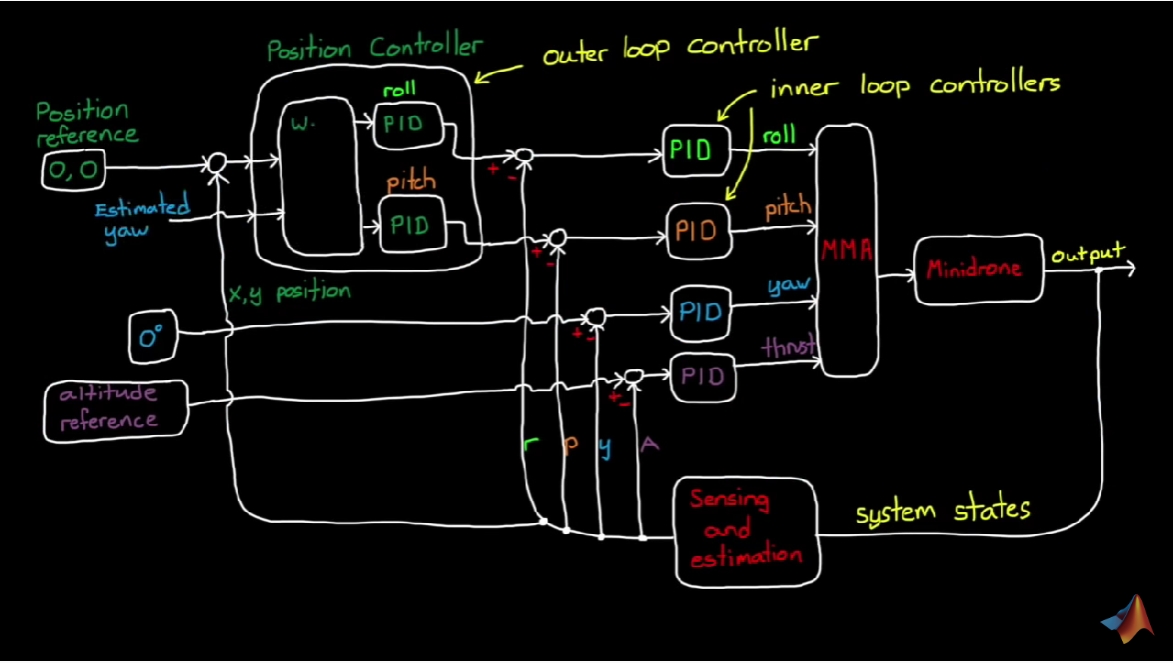 Position Controller
outer loop controller
inner loop controllers
Position
reference
0,0
Estimated
yaw
W.
roll
PID
pitch
PID
+
-
+
-
+
-
+
-
PID
roll
PID
pitch
PID
yaw
PID
thrust
MMA
Minidrone
output
x,y position
0°
altitude
reference
r
p
y
A
Sensing
and
estimation
system states